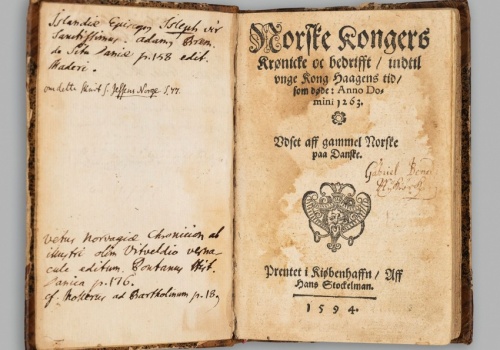 Islandiæ Episcopus Isleph vir
Sanctissimus. adam, Brem.
de Situ Daniæ p. 158 edit.
Maderi.
om dette skrift s. Jessens Norge S.
vetus Norvagiæ Chronicon ab
illustri olim Vitveldio verna-
cule editum. Pontanus Hist.
Danica p. 176.
cf. Mollerus ad Bartholinum p. 18
Norske Kongers
Krønicke oc bedrifft / indtil
vnge Kong Haagens tid /
som døde: Anno Do-
mini 1263.
Vdset aff gammel Norske
paa Danske.
Gabriel
Prentet i Kiøbenhaffn / Aff
Hans Stockelman.
1594.